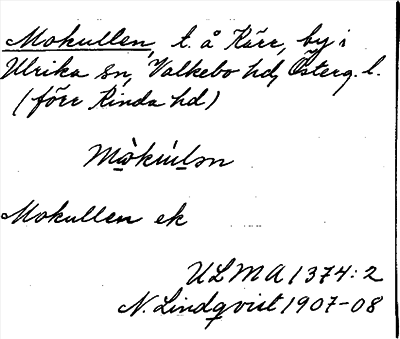 Mokullen, t. å Kärr, by i
Ulrika sn, Valkebo hd, Österg. l.
(förr Kinda hd)
Mòkúlən
Mokullen ek
ULMA 1374:2
N. Lindqvist 1907-08